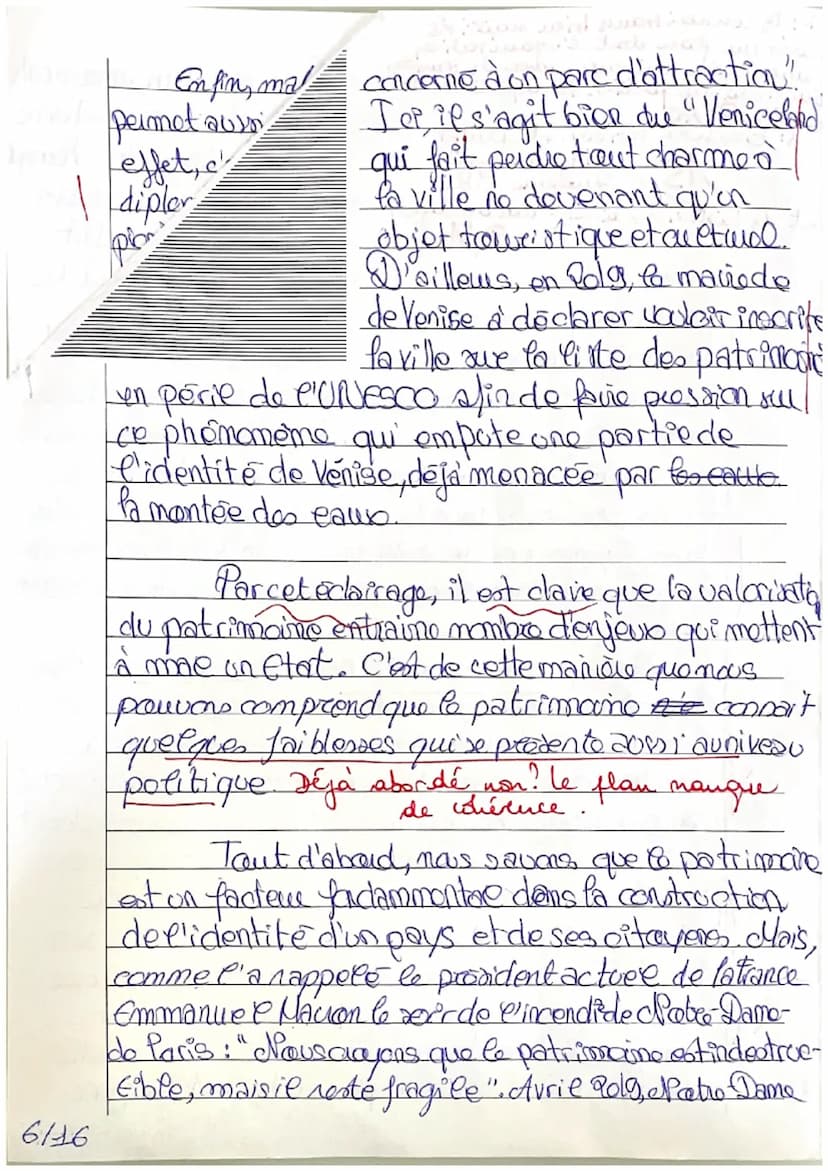 Enfin, mal
permet aussi
effet, c'
diplom
concerne à un parc d'attraction".
Ici, il s'agit bien du "Veniceland"
qui fait perdre tout charme à
la ville ne devenant qu'un
objet touristique et culturel.
D'ailleurs, en 2019, la mairie de
de Venise à déclarer vouloir inscrire
la ville sur la liste des patrimoine
en péril de l'UNESCO afin de faire pression sur
ce phénomème qui empote une partie de
l'identité de Vénise, déjà menacée par les eaux
la montée des eaux.
Par cet éclairage, il est claire que la valorisatio
du patrimoine entraine nombre d'enjeux qui mettent
à mal un Etat. C'est de cette manière que nous
pouvons comprend que le patrimoine connait
quelques faiblesses qui se présente aussi au niveau
politique. Déjà abordé non? Le plan manque
de cohérence.
Tout d'abord, nous savons que le patrimoine
est un facteur fondammentale dans la construction
de l'identité d'un pays et de ses citoyens. Mais,
comme l'a rappelé le président actuel de la France
Emmanuel Macron le soir de l'incendie de Notre-Dame-
de Paris : "Nous croyons que le patrimoine est indestruc-
tible, mais il reste fragile". Avril 2019, Notre-Dame
6/16